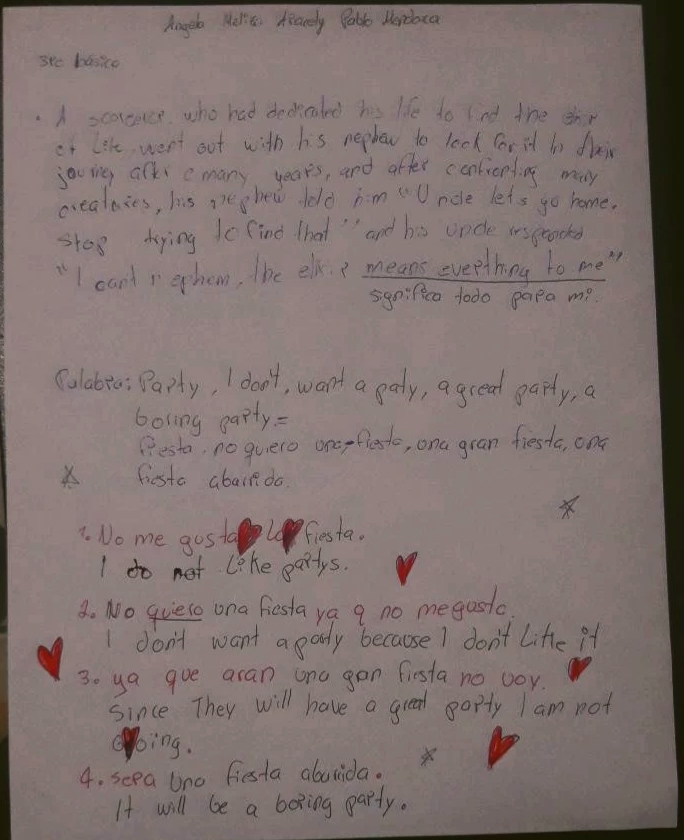 Angela Aracely Pablo Mendoza
3ro básico
. A who had dedicated his life to find the
of Life, went out with his nephew to look for it In their
journey after many years, and after confronting many
creatures, his nephew told him "Uncle let's go home.
Stop trying to find that" and his uncle responded
"I can't nephew, the means everthing to me"
significa todo papa mi.
Palabra: Party, I don't, want a paty, a great party, a
boring party=
fiesta, no quiero una fiesta, una gran fiesta, una
fiesta abairida.
1. No me gusta fiesta.
I do not Like partys.
2. No quiero una fiesta ya q no me gusta.
I don't want a party because I don't Like it
3. ya que aran una gan fiesta no voy.
Since They will have a great party I am not
4. sepa una fiesta aburida.
It will be a boring party.